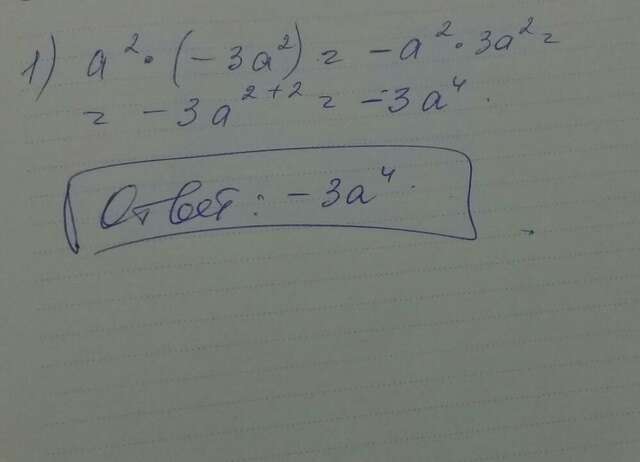 1) a² · (−3a²) = −a² · 3a² =
= −3a²⁺² = −3a⁴.
Ответ: −3a⁴.